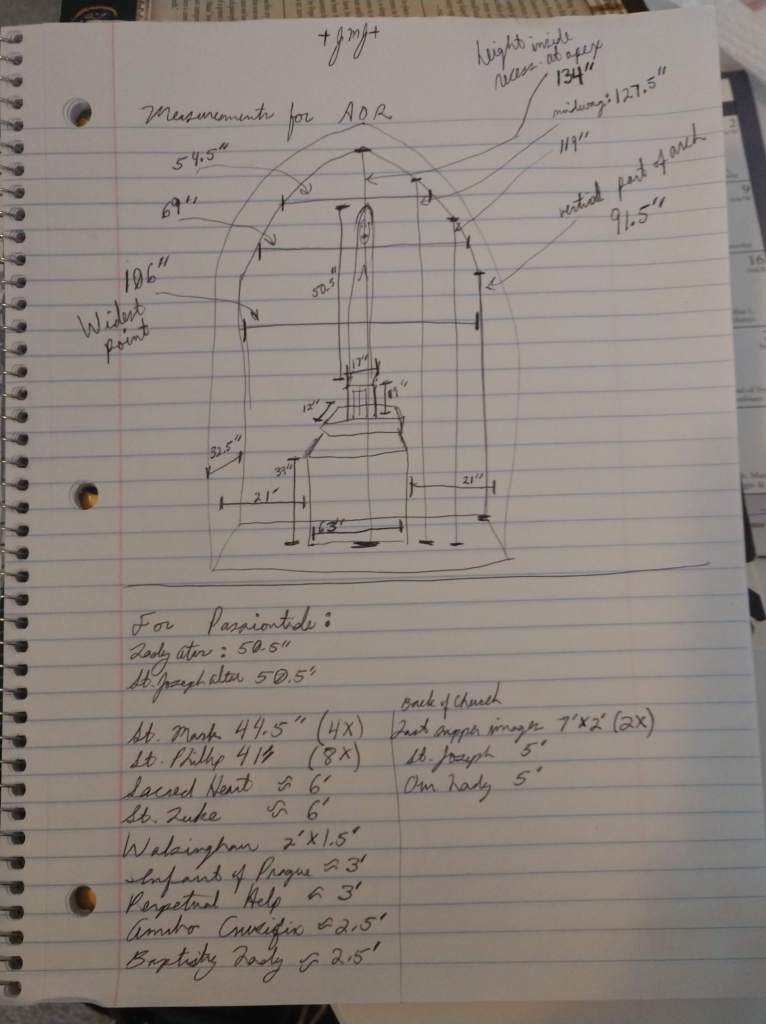 + JMJ +
height inside
recess at apex
134"
Measurements for AOR
midway: 127.5"
54.5"
119"
69"
vertical part of arch
91.5"
106"
Widest
point
50.5"
17"
12"
32.5"
39"
21"
21"
63"
For Passiontide:
Lady alter: 50.5"
St. Joseph alter 50.5"
Back of Church
St. Mark 44.5" (4x)
Last supper images 7'x2' (2x)
St. Phillip 41" (8x)
St. Joseph 5'
Sacred Heart ≈ 6'
Our Lady 5'
St. Luke ≈ 6'
Walsingham 2'x1.5'
Infant of Prague ≈ 3'
Perpetual Help ≈ 3'
Ambo Crucifix ≈ 2.5'
Baptistry Lady ≈ 2.5'